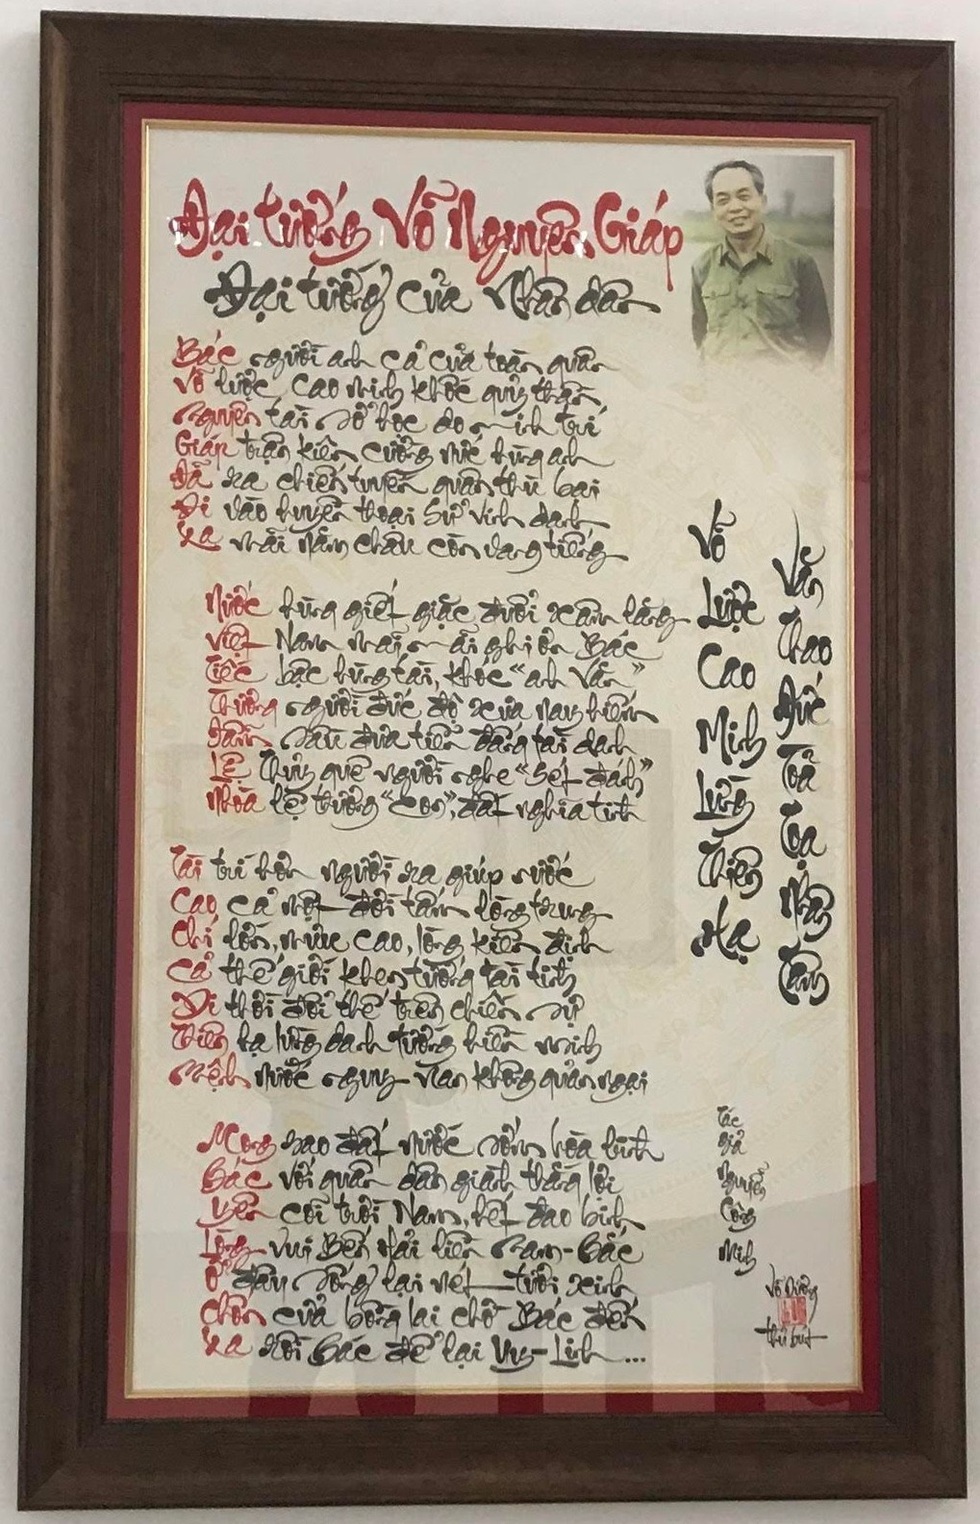 Đại tướng Võ Nguyên Giáp
Đại tướng của Nhân dân
Bác người anh cả của toàn quân
Võ lược cao minh khốc quỷ thần
Nguyên tài sở học do minh trí
Giáp trận kiên cường nức hùng anh
Đã ra chiến tuyến quân thù bại
Đi vào huyền thoại Sử vinh danh
Xa mãi năm châu còn vang tiếng
Nước hùng giết giặc đuổi xâm lăng
Việt Nam mãi mãi ghi ơn Bác
Tiếc bậc hùng tài, khóc "anh Văn"
Thương người đức độ xưa nay hiếm
Đẫm sầu đưa tiễn đấng tài danh
Lệ Thủy quê người nghe "Sét-đánh"
Nhòa lệ thương "Con", đất nghĩa tình
Tài trí hơn người ra giúp nước
Cao cả một đời tấm lòng trung
Chí lớn, mưu cao, lòng kiên định
Cả thế giới khen tướng tài tình
Di thời đổi thế trên chiến sự
Thiên hạ lừng danh tướng hiền minh
Mệnh nước nguy nan không quản ngại
Mong sao đất nước sớm hòa bình
Bác với quân dân giành thắng lợi
Yên cõi trời Nam, hết đao binh
Lòng vui Bến Hải liền Nam-Bắc
Ở đây sông lại nét tươi xinh
Chốn cửa bồng lai chờ Bác đến
Xa rồi Bác để lại Uy-Linh ...
Văn Thao Đức Toả Toạ Nhân Tâm
Võ Lược Cao Minh Lừng Thiên Hạ
Tác giả Nguyễn Công Minh
Võ Dương
thủ bút